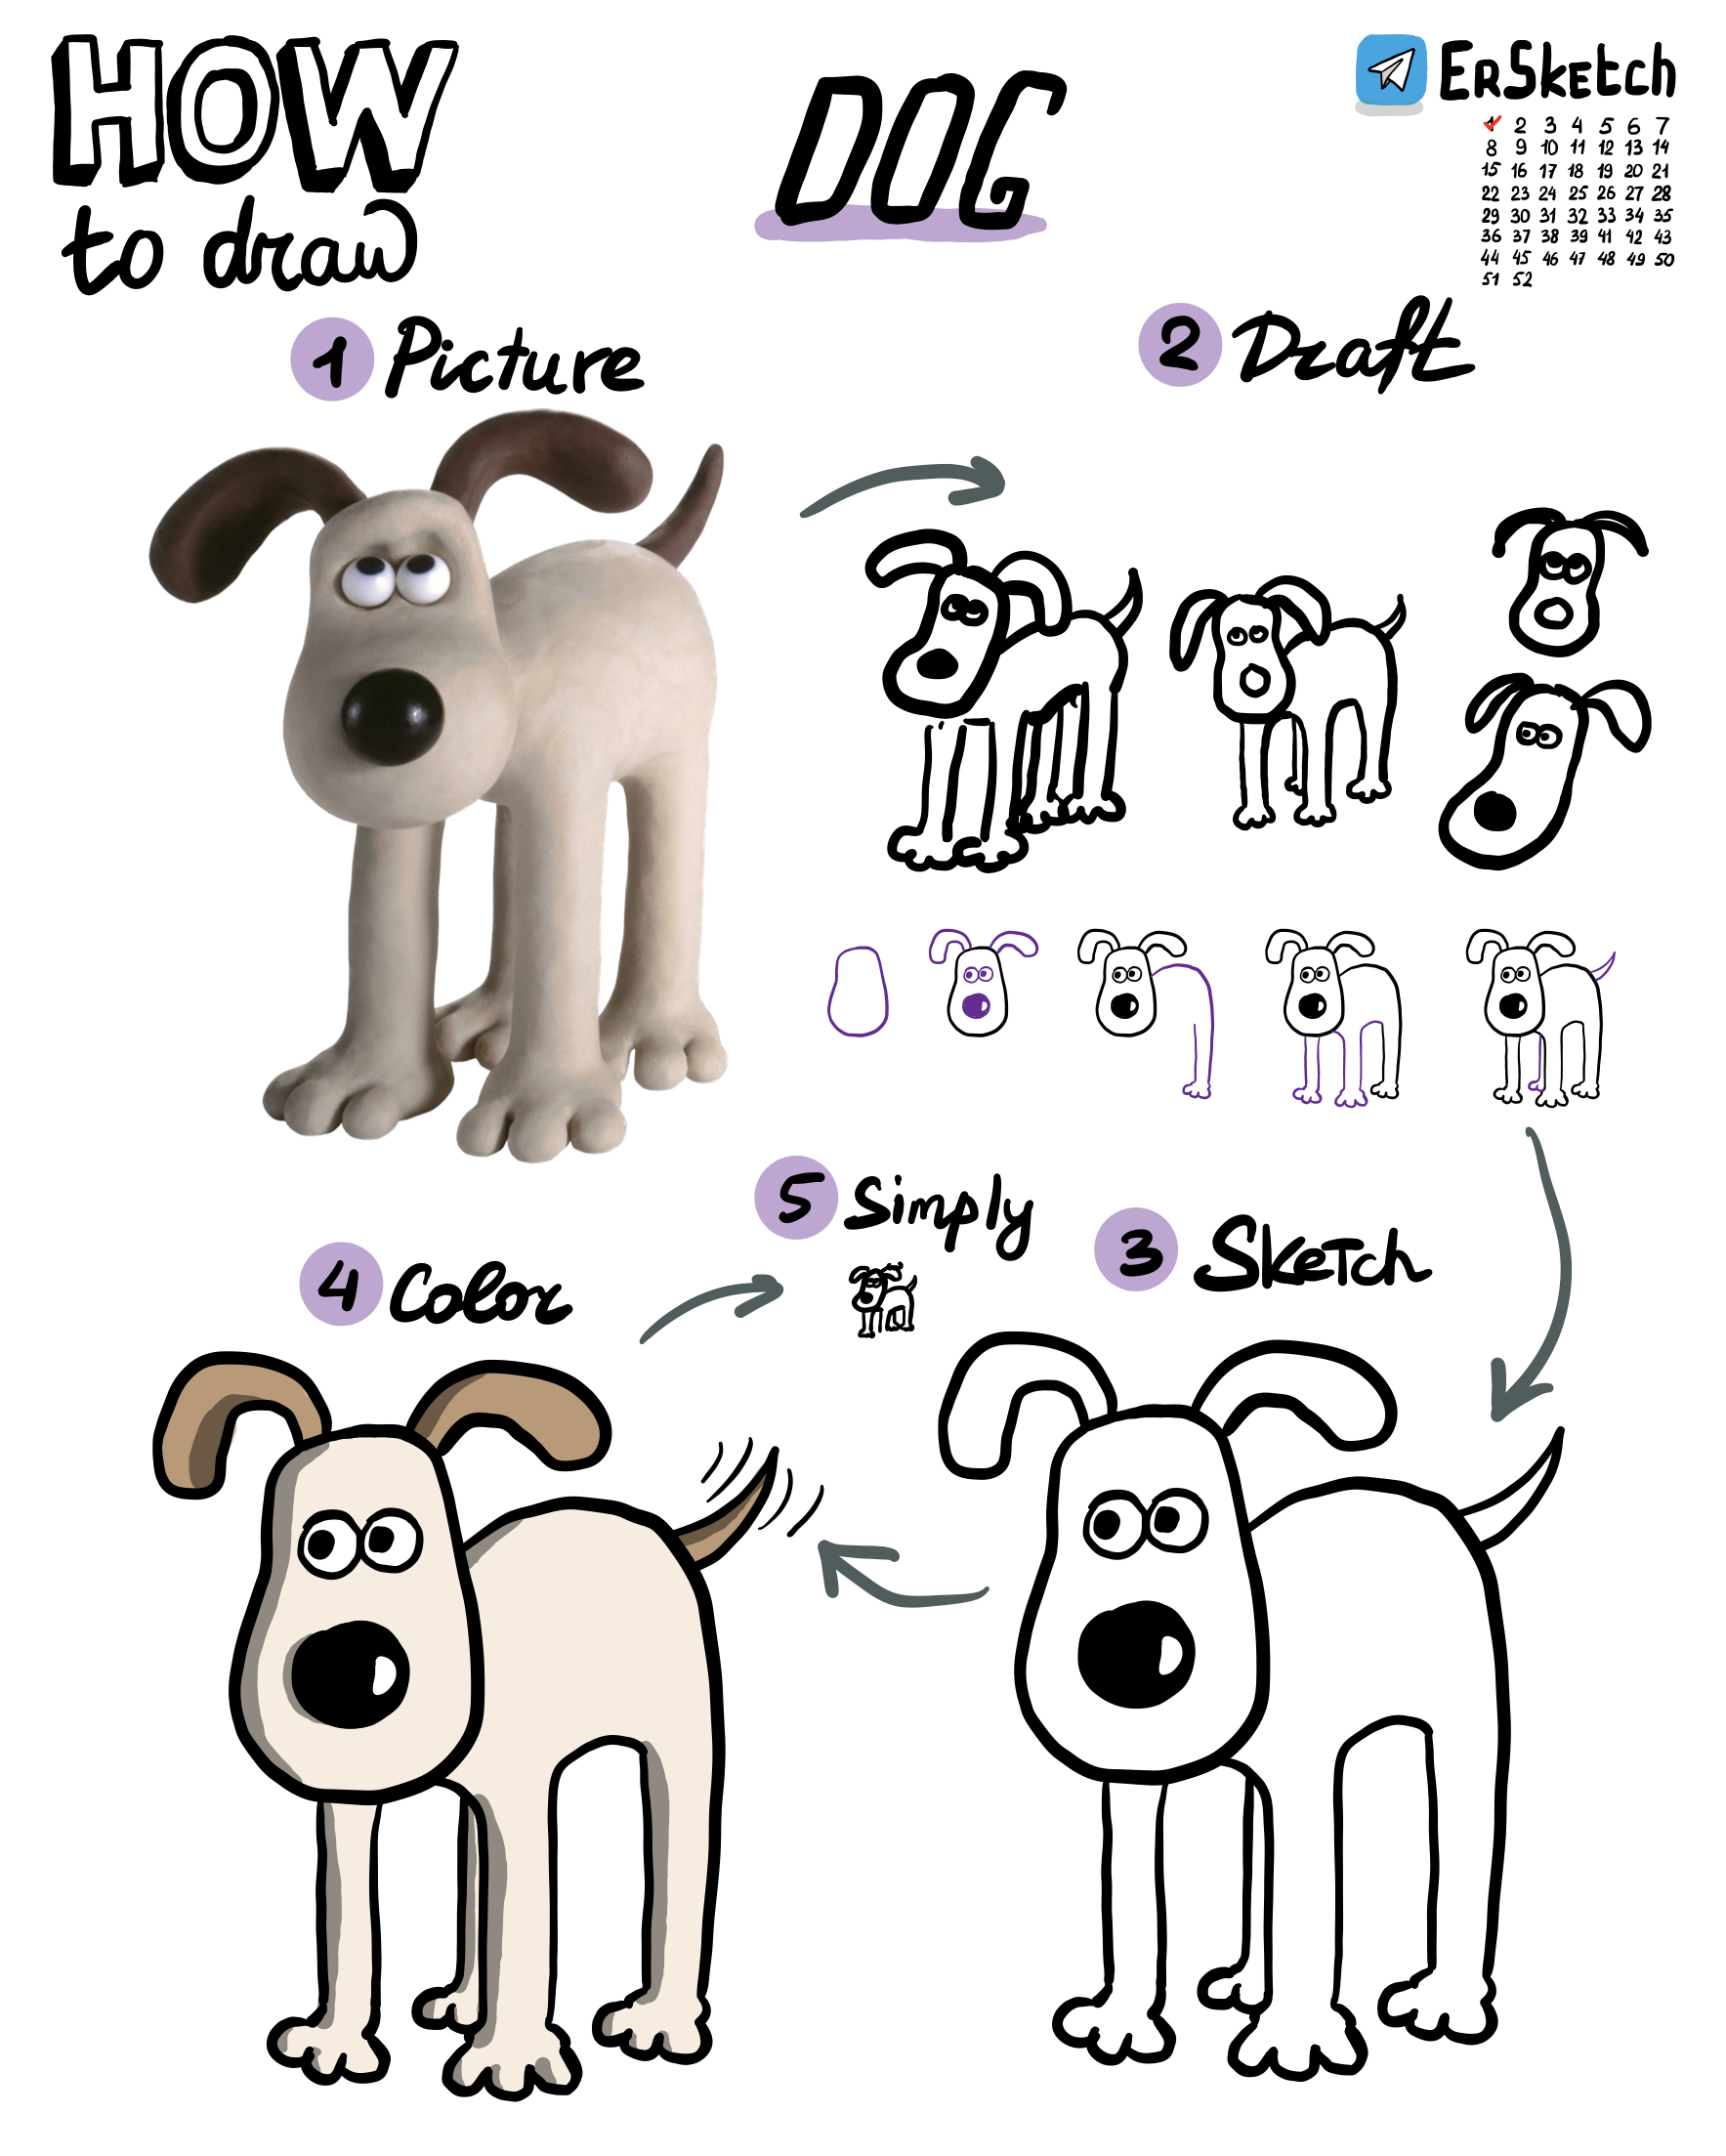 HOW
to draw
DOG
ErSketch
1 2 3 4 5 6 7
8 9 10 11 12 13 14
15 16 17 18 19 20 21
22 23 24 25 26 27 28
29 30 31 32 33 34 35
36 37 38 39 41 42 43
44 45 46 47 48 49 50
51 52
1 Picture
2 Draft
5 Simply
3 Sketch
4 Color